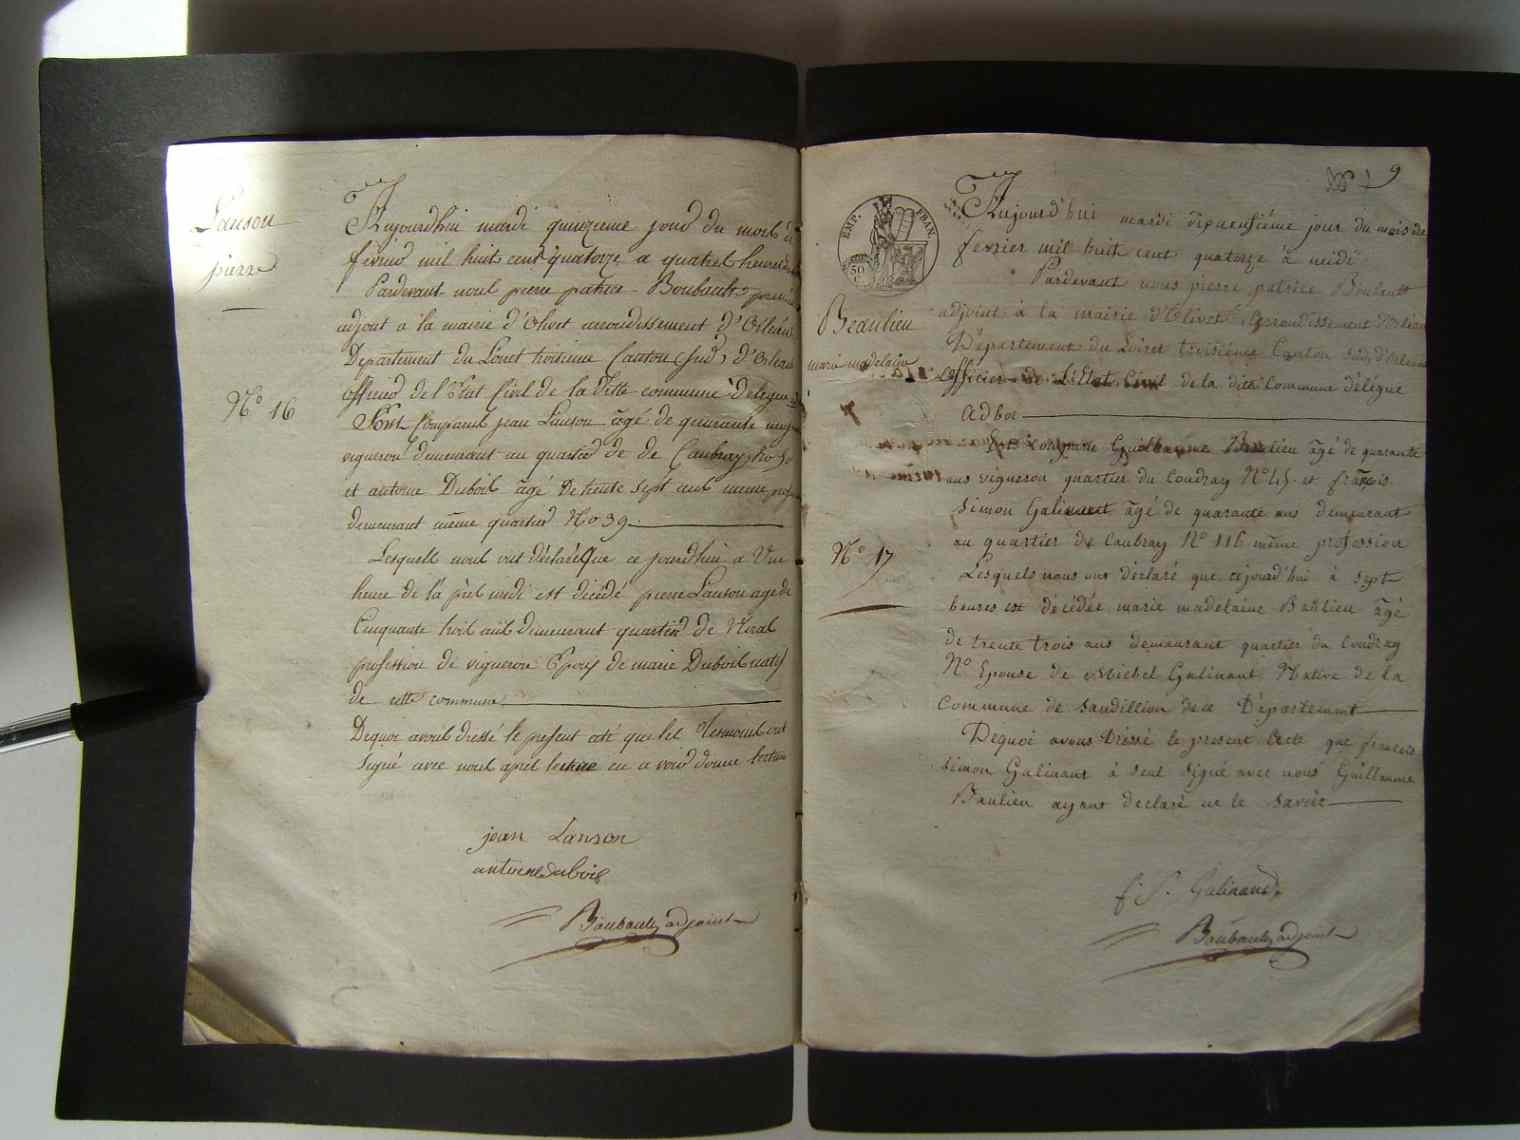 Lanson
pierre
N° 16
Aujourdhui mardi quinzieme jour du mois de
fevrier mil huit cent quatorze a quatres heures
Pardevant nous pierre patrice Boubault
adjoint a la mairie d'Olivet arrondissement d'Orléans
Département du Loiret troisieme Canton (sud) d'Orleans
officier de l'Etat Civil de la ditte commune délégué
Sont Comparus jean Lanson agé de quarante
vigneron demeurant au quartier de Caubray No 90
et antoine Dubois agé de trente sept ans meme
demeurant même quartier No 39.
Lesquels nous ont déclaré que ce jourdhui a Une
heure de l'après midi est décédé pierre Lanson age de
Cinquante trois ans demeurant quartier de
profession de vigneron Epoux de marie Dubois natif
de cette commune
Dequoi avons dressé le present acte que les Temoins ont
signé avec nous après lecture en avoir donné lecture
jean Lanson
antoine dubois
Boubault adjoint
9
EMP. FRAN.
50 C
Beaulieu
marie madelaine
N° 17
Aujourd'hui mardi dixneufiéme jour du mois de
fevrier mil huit cent quatorze à midi
Pardevant nous pierre patrice Boubault
adjoint à la mairie d'Olivet Arrondissement d'Orléans
Département du Loiret troisiéme Canton sud, d'Orleans
officier de l'Etat Civil de la dite Commune délégué
Ad hoc
Est comparu Guillaume Baulieu âgé de quarante
ans vigneron quartier du Coudray N° 45 et françois
Simon Galinant âgé de quarante ans demeurant
au quartier de Caubray N° 116 même profession
Lesquels nous ont déclaré que cejourd'hui à sept
heures est décédée marie madelaine Baulieu âgé
de trente trois ans demeurant quartier du Coudray
N° Epouse de Michel Galinant Native de la
Commune de Sandillion de ce Département
Dequoi avons dréssé le present Acte que francois
Simon Galinant à seul signé avec nous Guillaume
Baulieu ayant declaré ne le savoir
f. S. Galinand
Boubault adjoint